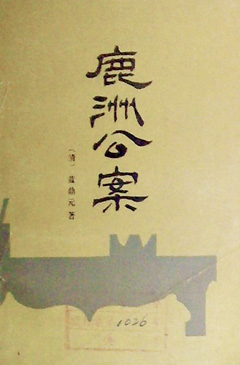 鹿洲公案
（清）蓝鼎元著
1026